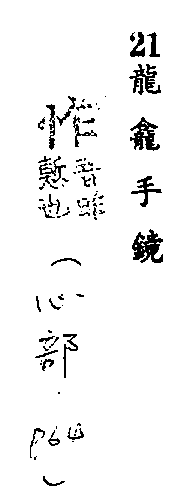 21龍龕手鏡
怍音昨慙也(心部.P64)